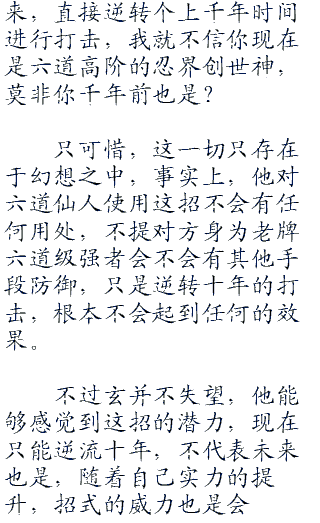 来，直接逆转个上千年时间
进行打击，我就不信你现在
是六道高阶的忍界创世神，
莫非你千年前也是？
只可惜，这一切只存在
于幻想之中，事实上，他对
六道仙人使用这招不会有任
何用处，不提对方身为老牌
六道级强者会不会有其他手
段防御，只是逆转十年的打
击，根本不会起到任何的效
果。
不过玄并不失望，他能
够感觉到这招的潜力，现在
只能逆流十年，不代表未来
也是，随着自己实力的提
升，招式的威力也是会